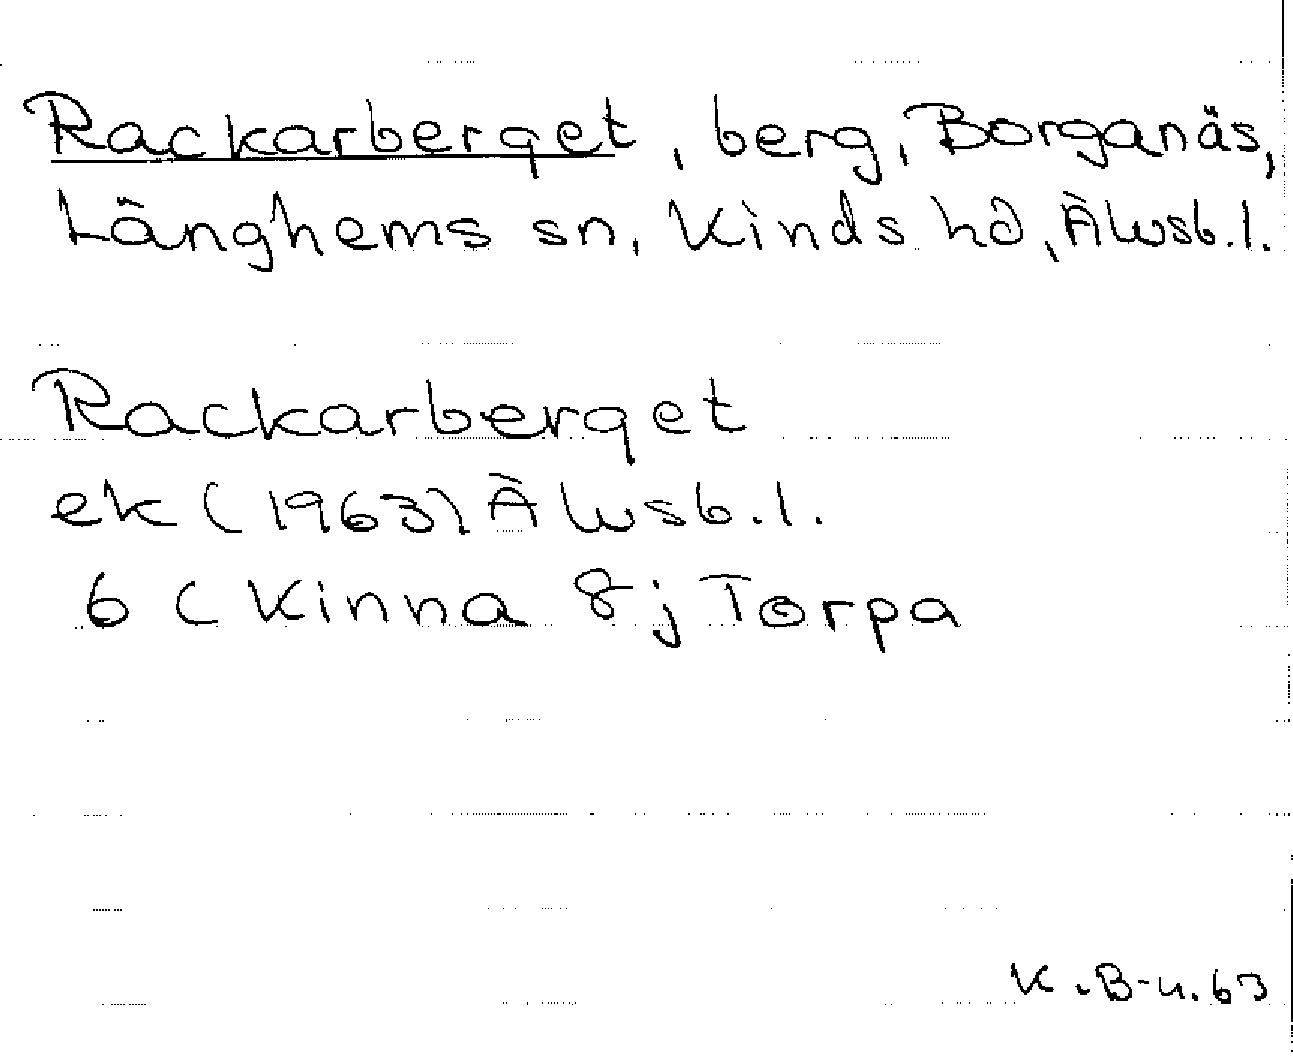 Rackarberget, berg, Borganäs,
Länghems sn, Kinds hd, Älvsb.l.
Rackarberget
ek (1963) Älvsb.l.
6 C Kinna 8j Torpa
K.B-n.63